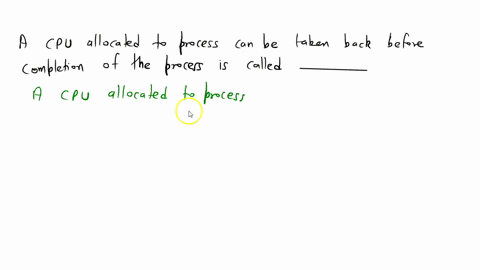 A CPU allocated to process can be taken back before
completion of the process is called ________
A CPU allocated to process